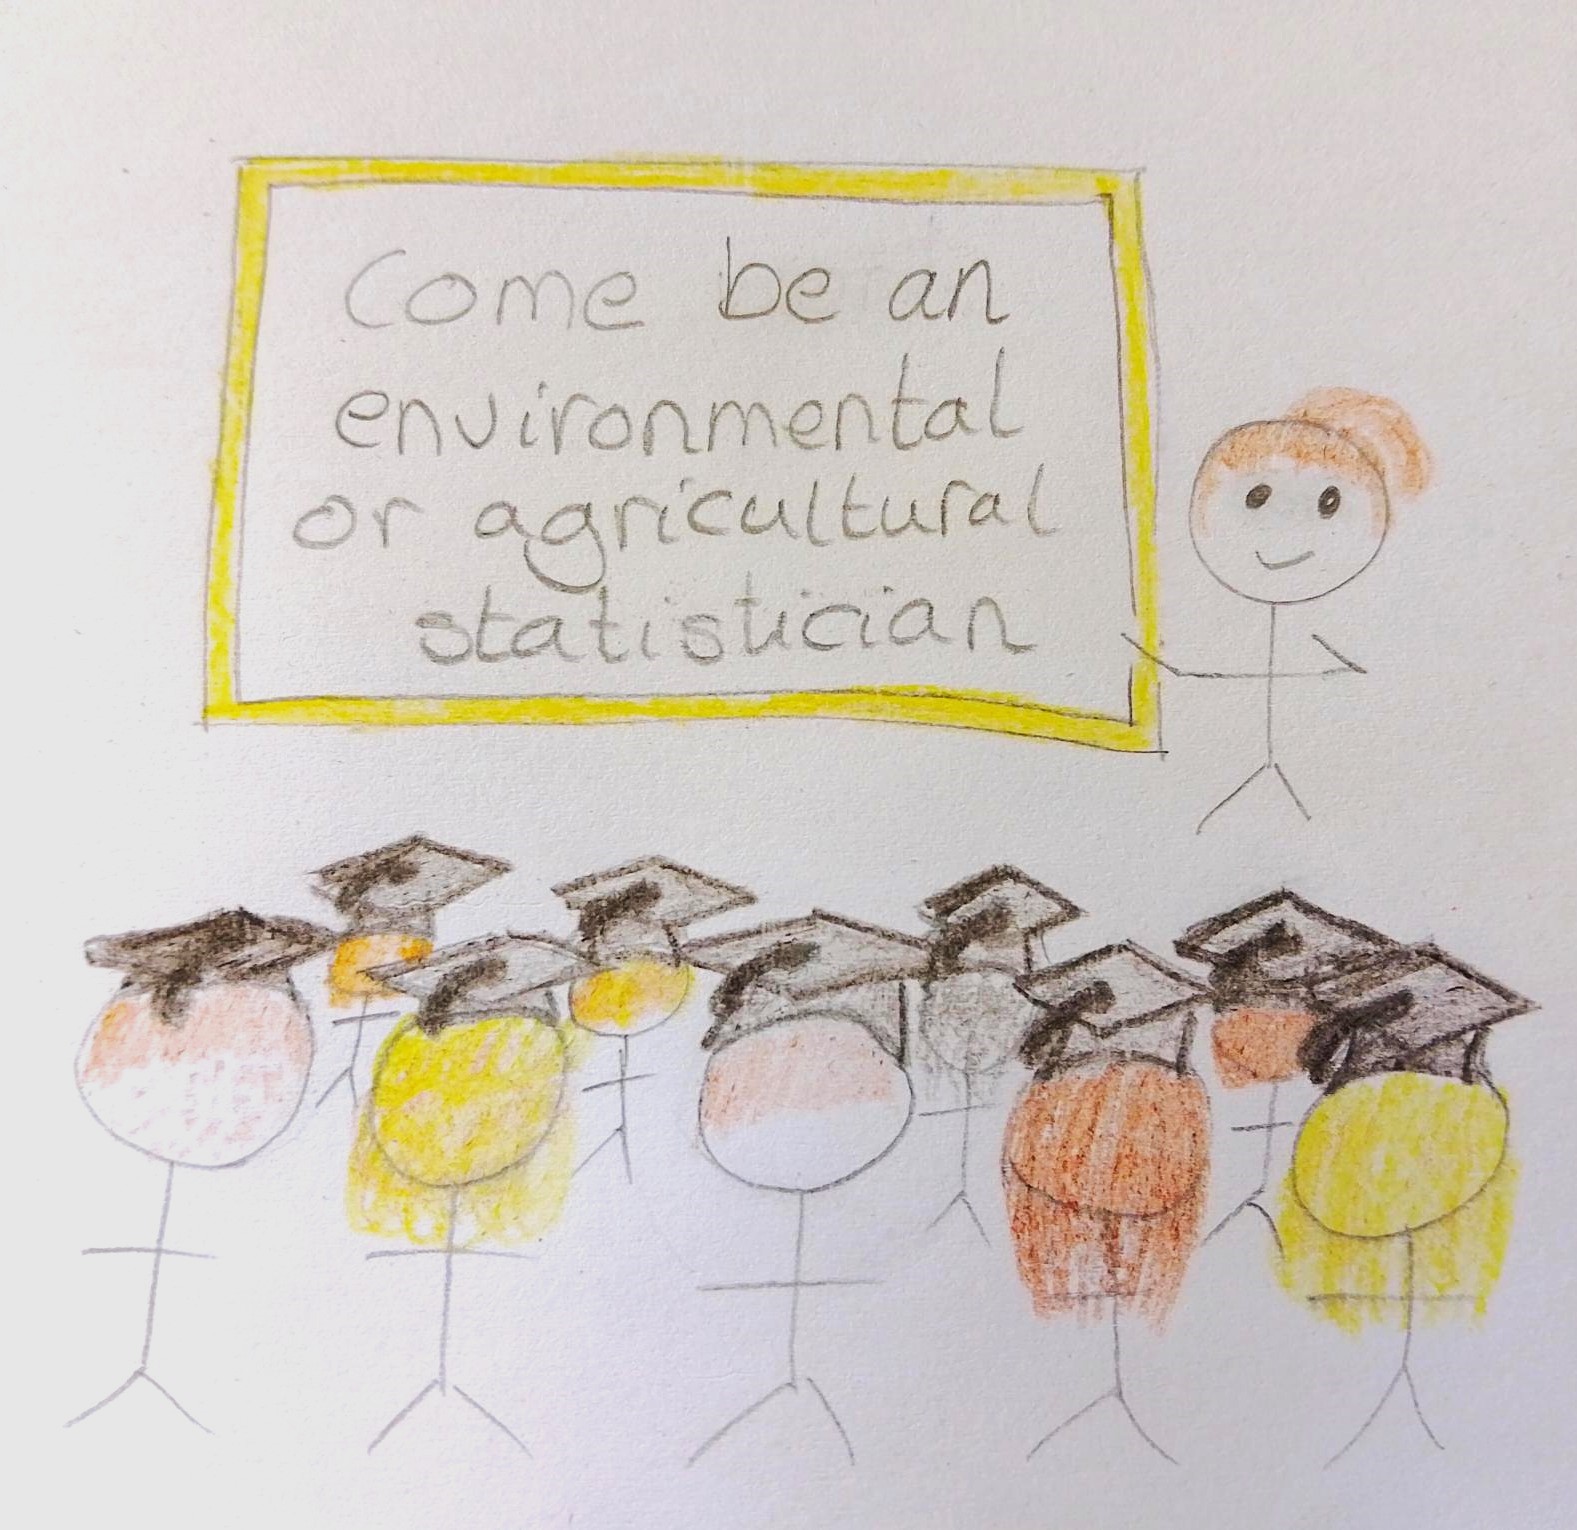 Come be an
environmental
or agricultural
statistician